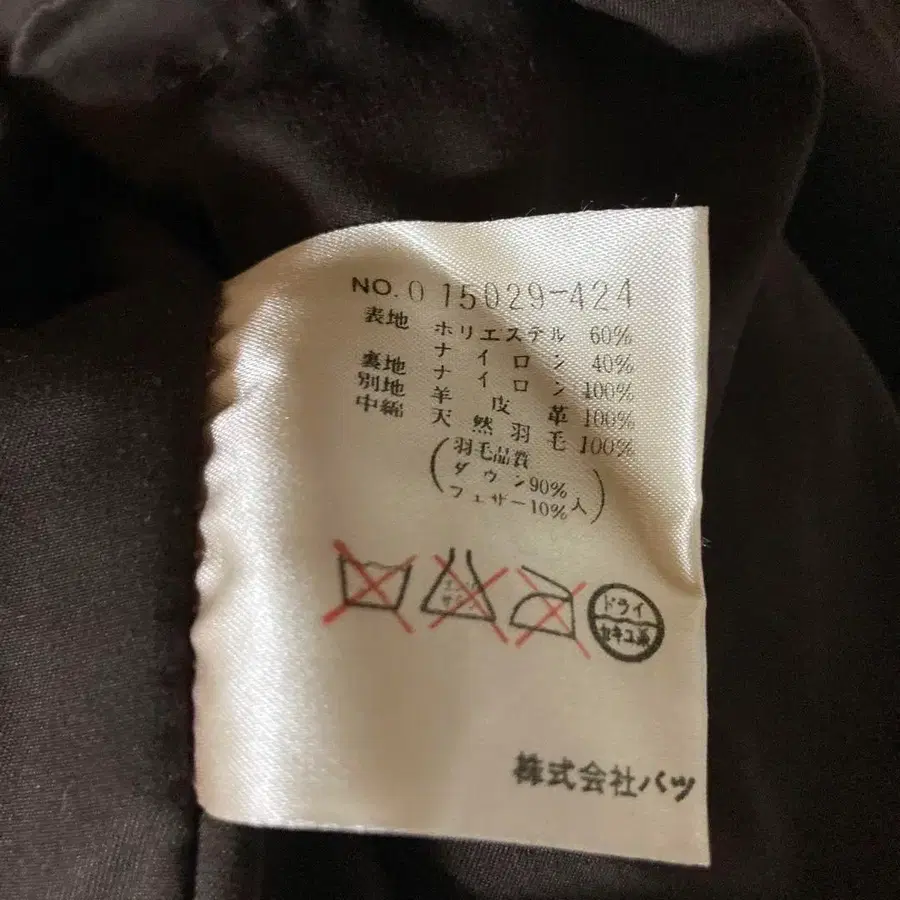 NO. 0 15029-424
表地 ポリエステル 60%
ナイロン 40%
裏地 ナイロン 100%
別地 羊皮革 100%
中綿 天然羽毛 100%
(羽毛品質
ダウン90%
フェザー10%入)
エンソ
サラシ
ドライ
セキユ系
株式会社バツ